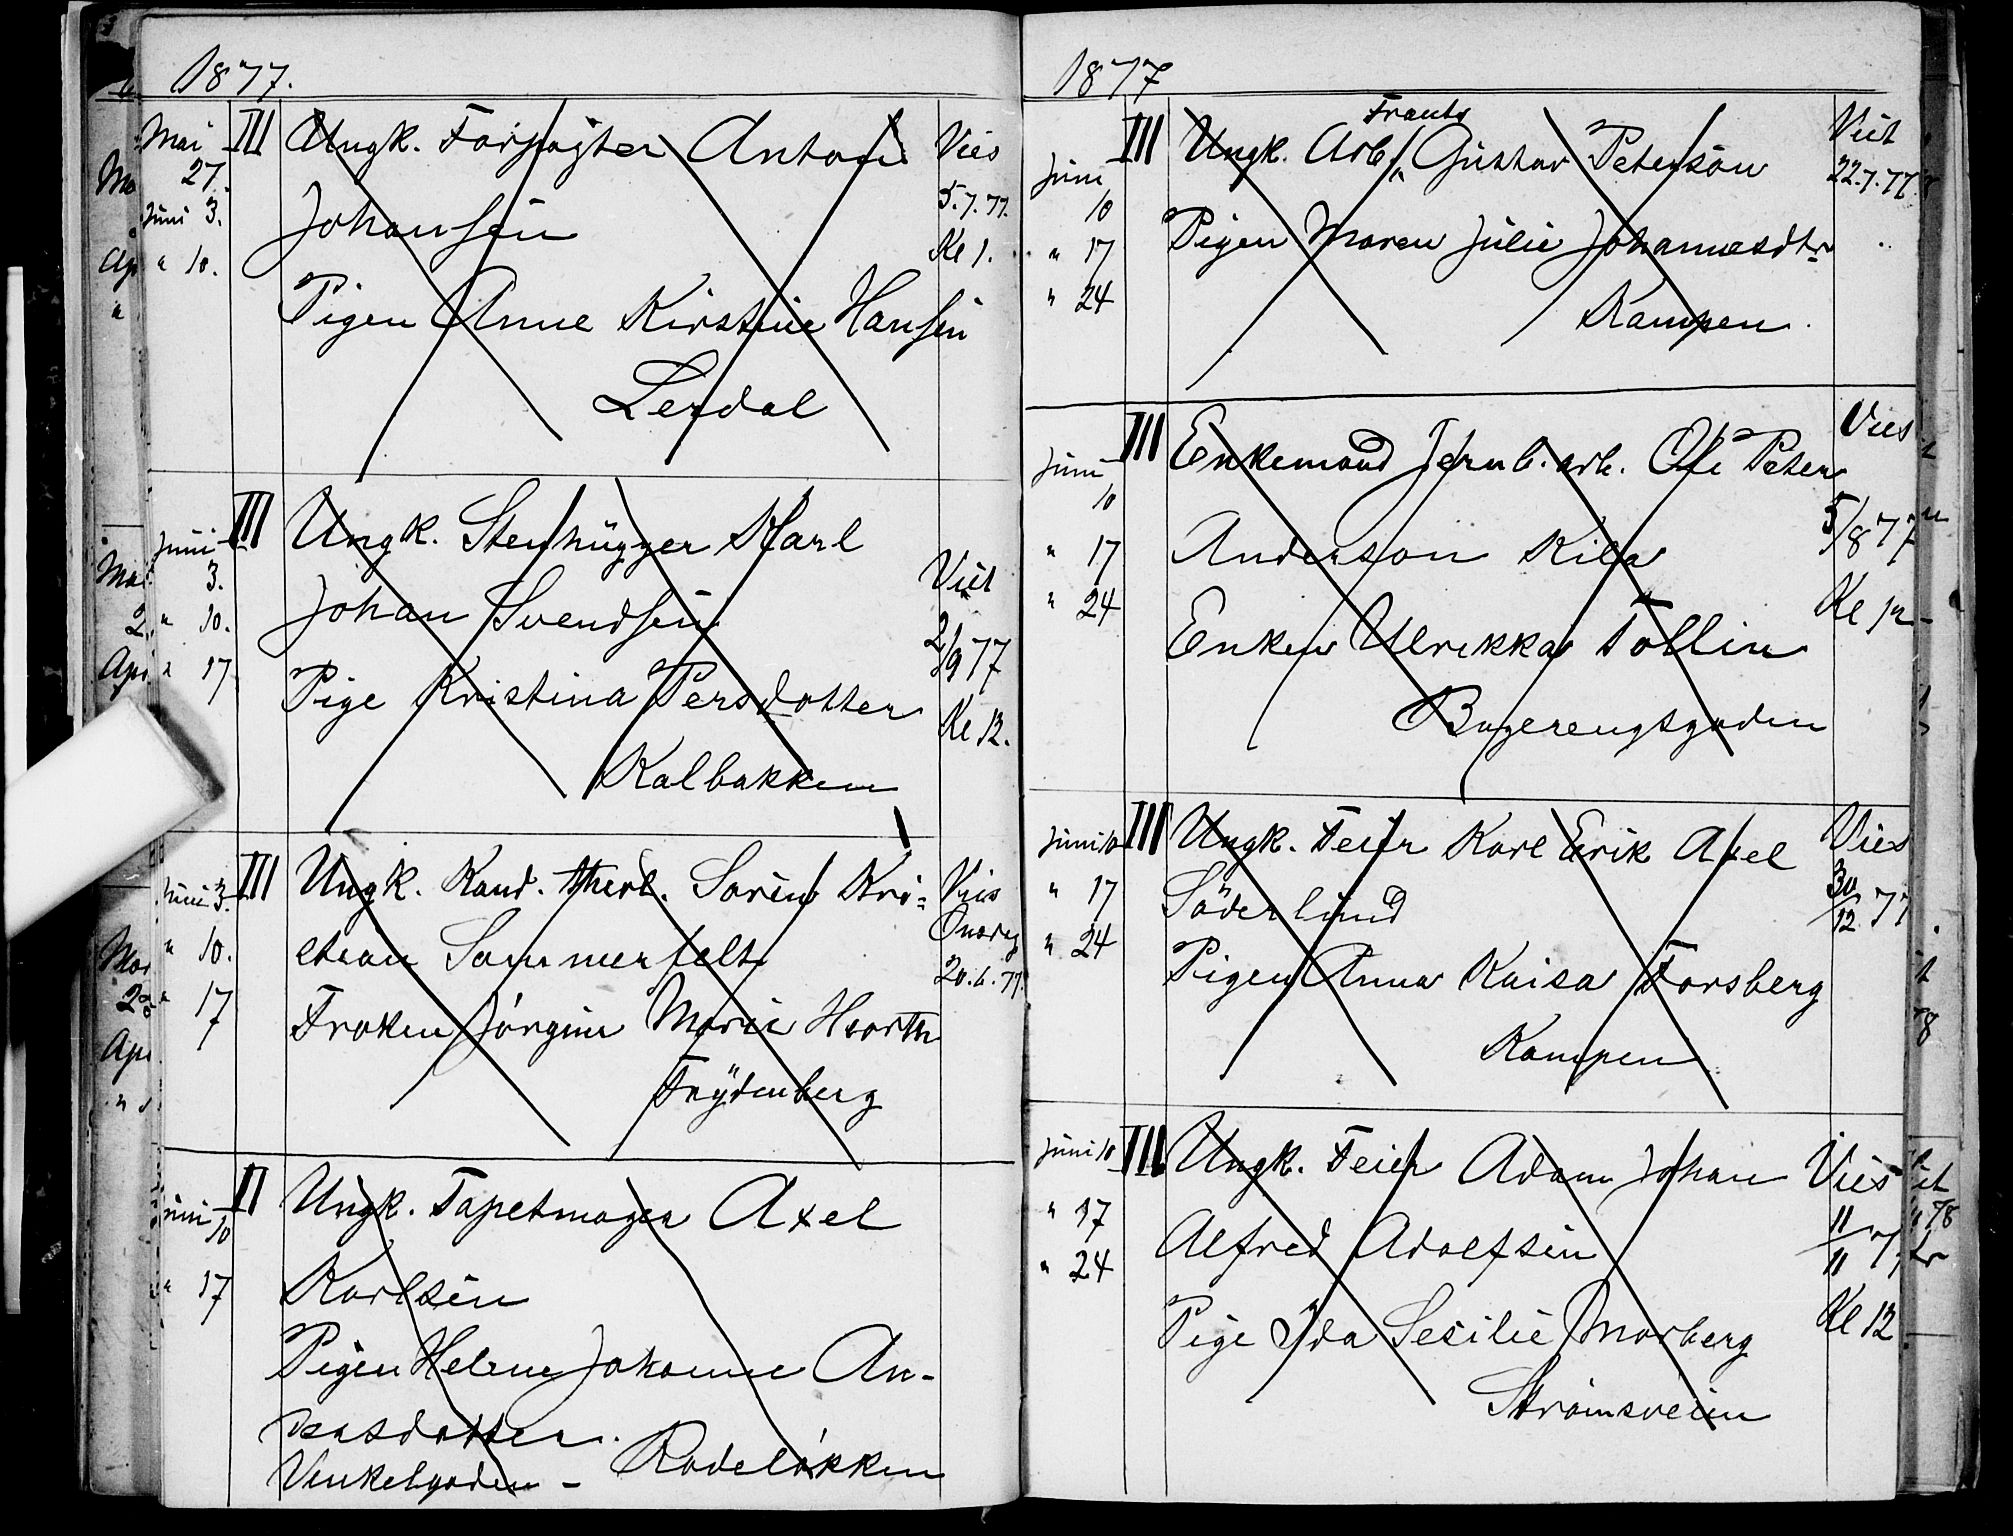 1877.
Mai 27. III Ungk. Forpagter Anton Vies
Juni 3. Johansen 5.7.77.
" 10. Kl 1.
Pigen Anne Kirstine Hansen
Lerdal
Juni 3. III Ungk. Stenhugger Karl
" 10. Johan Svendsen Viet 2/9 77
" 17 Pige Kristina Persdotter Kl 12.
Kalbakken
Juni 3. III Ungk. Kand. theol. Sören Kri= Vies
" 10. stian Sommerfelt Onsdag 20.6.77
" 17 Frøken Jörgine Marie Hiorth
Frydenberg
Juni 10 II Ungk. Tapetmager Axel
" 17 Karlsen
Pigen Helene Johanne An-
dersdotter.
Vinkelgaden - Rodeløkken
1877
Frants
Juni 10 III Ungk. Arb. Gustav Peterson Viet 22.7.77
" 17 Pigen Maren Julie Johannesdtr
" 24 Kampen.
Juni 10 III Enkemand Jernb. arb. Ole Peter Vies
" 17 Anderson Kila 5/8 77
" 24 Enken Ulrikka Tollin Kl 12
Bagerengsgaden
Juni 10 III Ungk. Feier Karl Erik Axel Vies
" 17 Söderlund 30/12 77
" 24 Pigen Anna Kaisa Forsberg
Kampen
Juni 10 III Ungk. Feier Adam Johan Vies
" 17 Alfred Adolfsen 11/11 77
" 24 Kl 12
Pige Ida Sesilie Morberg
Strømsveien